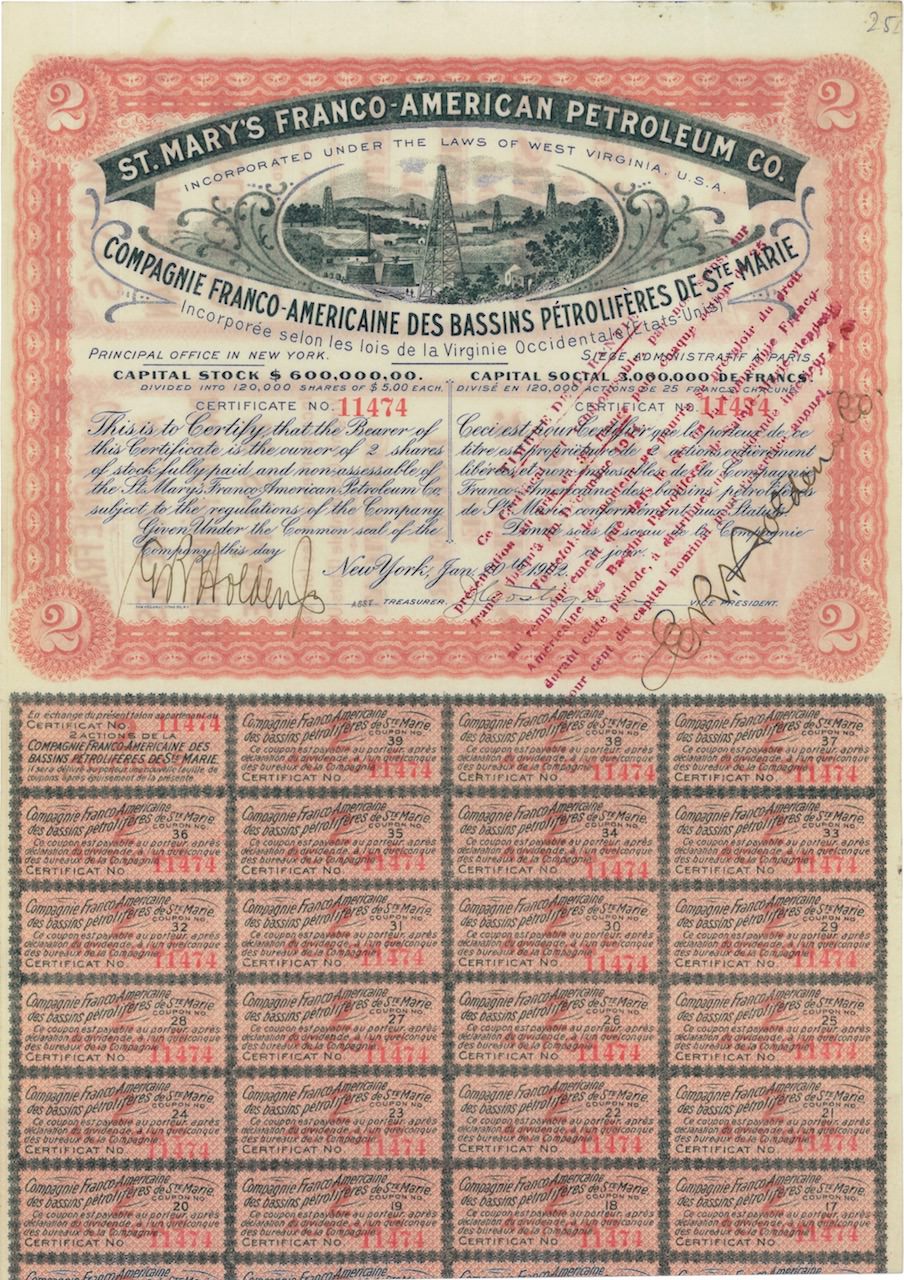 25
2
2
ST. MARY'S FRANCO-AMERICAN PETROLEUM CO.
INCORPORATED UNDER THE LAWS OF WEST VIRGINIA, U.S.A.
COMPAGNIE FRANCO-AMERICAINE DES BASSINS PÉTROLIFÈRES DE STE MARIE
Incorporée selon les lois de la Virginie Occidentale (Etats-Unis)
PRINCIPAL OFFICE IN NEW YORK.
CAPITAL STOCK $ 600,000,00.
DIVIDED INTO 120,000 SHARES OF $ 5,00 EACH.
CERTIFICATE NO. 11474
This is to Certify, that the Bearer of
this Certificate is the owner of 2 shares
of stock fully paid and non-assessable of
the St. Mary's Franco American Petroleum Co.
subject to the regulations of the Company
Given Under the Common seal of the
Company this day
SIEGE ADMINISTRATIF A PARIS
CAPITAL SOCIAL 3,000,000 DE FRANCS.
DIVISÉ EN 120,000 ACTIONS DE 25 FRANCS CHACUNE
CERTIFICAT NO. 11474
Ceci est pour Certifier que le porteur de ce
titre est propriétaire de 2 actions entièrement
libérées et non imposables de la Compagnie
Franco-Américaine des bassins pétrolifères
de Ste Marie, conformément aux Statuts
Donné sous le sceau de la Compagnie
ce jour.
New York, Jan. 1902.
G.R. Holden Jr
ASST. TREASURER.
VICE PRESIDENT.
G.R. Holden Co.
2
2
En échange du présent talon appartenant au
CERTIFICAT NO. 11474
2 ACTIONS DE LA
COMPAGNIE FRANCO-AMERICAINE DES
BASSINS PÉTROLIFÈRES DE STE MARIE.
il sera délivré au porteur une nouvelle feuille de
coupons
Compagnie Franco-Americaine
des bassins pétrolifères de Ste Marie.
COUPON NO.
39
Ce coupon est payable au porteur, après
déclaration du dividende, à l'un quelconque
des bureaux de la Compagnie
CERTIFICAT NO 11474
Compagnie Franco-Americaine
des bassins pétrolifères de Ste Marie.
COUPON NO.
38
Ce coupon est payable au porteur, après
déclaration du dividende, à l'un quelconque
des bureaux de la Compagnie
CERTIFICAT NO 11474
Compagnie Franco-Americaine
des bassins pétrolifères de Ste Marie.
COUPON NO.
37
Ce coupon est payable au porteur, après
déclaration du dividende, à l'un quelconque
des bureaux de la Compagnie
CERTIFICAT NO 11474
Compagnie Franco-Americaine
des bassins pétrolifères de Ste Marie.
COUPON NO.
36
Ce coupon est payable au porteur, après
déclaration du dividende, à l'un quelconque
des bureaux de la Compagnie
CERTIFICAT NO 11474
Compagnie Franco-Americaine
des bassins pétrolifères de Ste Marie.
COUPON NO.
35
Ce coupon est payable au porteur, après
déclaration du dividende, à l'un quelconque
des bureaux de la Compagnie
CERTIFICAT NO 11474
Compagnie Franco-Americaine
des bassins pétrolifères de Ste Marie.
COUPON NO.
34
Ce coupon est payable au porteur, après
déclaration du dividende, à l'un quelconque
des bureaux de la Compagnie
CERTIFICAT NO 11474
Compagnie Franco-Americaine
des bassins pétrolifères de Ste Marie.
COUPON NO.
33
Ce coupon est payable au porteur, après
déclaration du dividende, à l'un quelconque
des bureaux de la Compagnie
CERTIFICAT NO 11474
Compagnie Franco-Americaine
des bassins pétrolifères de Ste Marie.
COUPON NO.
32
Ce coupon est payable au porteur, après
déclaration du dividende, à l'un quelconque
des bureaux de la Compagnie
CERTIFICAT NO 11474
Compagnie Franco-Americaine
des bassins pétrolifères de Ste Marie.
COUPON NO.
31
Ce coupon est payable au porteur, après
déclaration du dividende, à l'un quelconque
des bureaux de la Compagnie
CERTIFICAT NO 11474
Compagnie Franco-Americaine
des bassins pétrolifères de Ste Marie.
COUPON NO.
30
Ce coupon est payable au porteur, après
déclaration du dividende, à l'un quelconque
des bureaux de la Compagnie
CERTIFICAT NO 11474
Compagnie Franco-Americaine
des bassins pétrolifères de Ste Marie.
COUPON NO.
29
Ce coupon est payable au porteur, après
déclaration du dividende, à l'un quelconque
des bureaux de la Compagnie
CERTIFICAT NO 11474
Compagnie Franco-Americaine
des bassins pétrolifères de Ste Marie.
COUPON NO.
28
Ce coupon est payable au porteur, après
déclaration du dividende, à l'un quelconque
des bureaux de la Compagnie
CERTIFICAT NO 11474
Compagnie Franco-Americaine
des bassins pétrolifères de Ste Marie.
COUPON NO.
27
Ce coupon est payable au porteur, après
déclaration du dividende, à l'un quelconque
des bureaux de la Compagnie
CERTIFICAT NO 11474
Compagnie Franco-Americaine
des bassins pétrolifères de Ste Marie.
COUPON NO.
26
Ce coupon est payable au porteur, après
déclaration du dividende, à l'un quelconque
des bureaux de la Compagnie
CERTIFICAT NO 11474
Compagnie Franco-Americaine
des bassins pétrolifères de Ste Marie.
COUPON NO.
25
Ce coupon est payable au porteur, après
déclaration du dividende, à l'un quelconque
des bureaux de la Compagnie
CERTIFICAT NO 11474
Compagnie Franco-Americaine
des bassins pétrolifères de Ste Marie.
COUPON NO.
24
Ce coupon est payable au porteur, après
déclaration du dividende, à l'un quelconque
des bureaux de la Compagnie
CERTIFICAT NO 11474
Compagnie Franco-Americaine
des bassins pétrolifères de Ste Marie.
COUPON NO.
23
Ce coupon est payable au porteur, après
déclaration du dividende, à l'un quelconque
des bureaux de la Compagnie
CERTIFICAT NO 11474
Compagnie Franco-Americaine
des bassins pétrolifères de Ste Marie.
COUPON NO.
22
Ce coupon est payable au porteur, après
déclaration du dividende, à l'un quelconque
des bureaux de la Compagnie
CERTIFICAT NO 11474
Compagnie Franco-Americaine
des bassins pétrolifères de Ste Marie.
COUPON NO.
21
Ce coupon est payable au porteur, après
déclaration du dividende, à l'un quelconque
des bureaux de la Compagnie
CERTIFICAT NO 11474
Compagnie Franco-Americaine
des bassins pétrolifères de Ste Marie.
COUPON NO.
20
Ce coupon est payable au porteur, après
déclaration du dividende, à l'un quelconque
des bureaux de la Compagnie
CERTIFICAT NO 11474
Compagnie Franco-Americaine
des bassins pétrolifères de Ste Marie.
COUPON NO.
19
Ce coupon est payable au porteur, après
déclaration du dividende, à l'un quelconque
des bureaux de la Compagnie
CERTIFICAT NO 11474
Compagnie Franco-Americaine
des bassins pétrolifères de Ste Marie.
COUPON NO.
18
Ce coupon est payable au porteur, après
déclaration du dividende, à l'un quelconque
des bureaux de la Compagnie
CERTIFICAT NO 11474
Compagnie Franco-Americaine
des bassins pétrolifères de Ste Marie.
COUPON NO.
17
Ce coupon est payable au porteur, après
déclaration du dividende, à l'un quelconque
des bureaux de la Compagnie
CERTIFICAT NO 11474
Compagnie Franco-Americaine
Compagnie Franco-Americaine
Compagnie Franco-Americaine
Compagnie Franco-Americaine